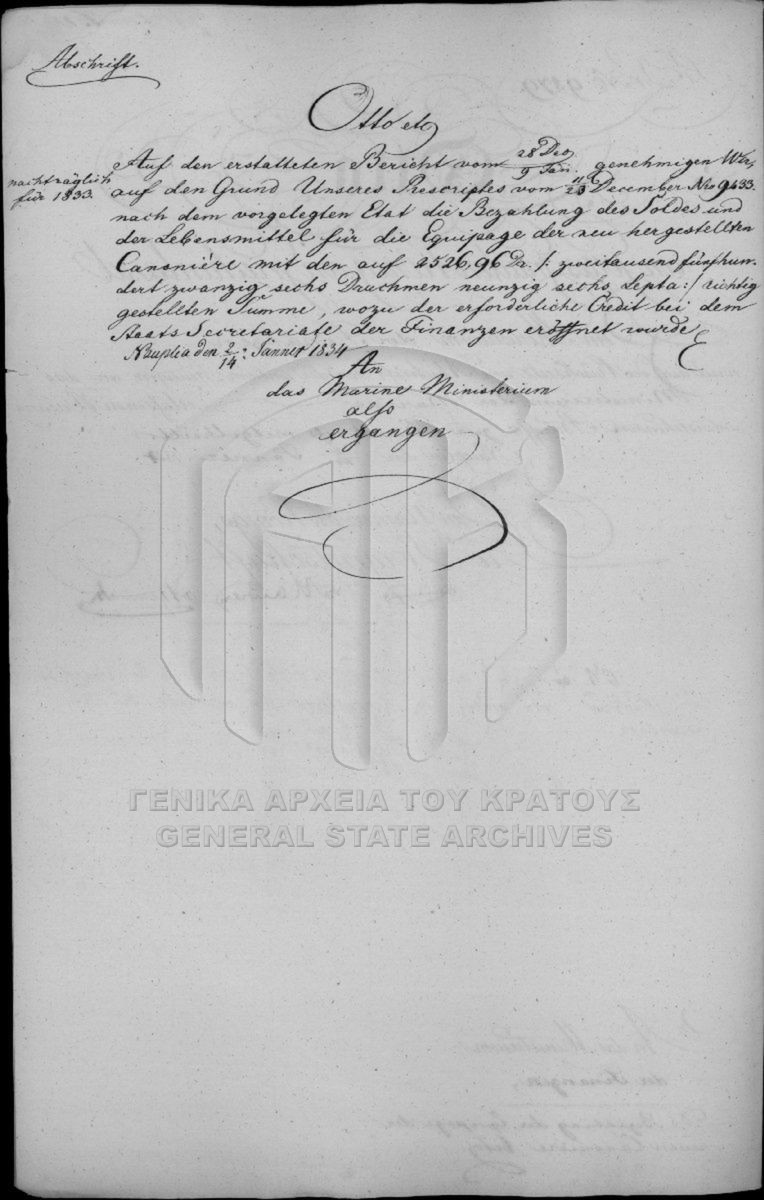 Abschrift.
Otto etc
nachträglich
für 1833.
Auf den erstatteten Bericht vom 28 Dec/9 Jan. genehmigen Wir,
auf den Grund Unseres Rescriptes vom 11/23 December Nro 9433.
nach dem vorgelegten Etat die Bezahlung des Soldes und
der Lebensmittel für die Equipage der neu hergestellten
Canoniére mit den auf 2526,96 Dr. /: zweitausend fünfhun-
dert zwanzig sechs Drachmen neunzig sechs Lepta :/ richtig
gestellten Summe, wozu der erforderliche Credit bei dem
Staats Secretariate der Finanzen eröffnet wurde
Nauplia den 2/14: Jänner 1834
An
das Marine Ministerium
also
ergangen
ΓΕΝΙΚΑ ΑΡΧΕΙΑ ΤΟΥ ΚΡΑΤΟΥΣ
GENERAL STATE ARCHIVES